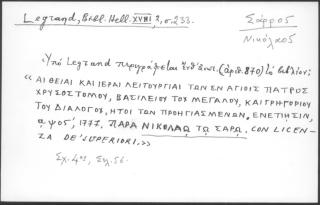 Legrand, Bibl. Hell. XVIII, 2, σ. 233.
Σάρρος
Νικόλαος
Ὑπὸ Legrand περιγράφεται ἐνθ' ἀνωτ. (ἀριθ. 870) τὸ βιβλίον:
« ΑΙ ΘΕΙΑΙ ΚΑΙ ΙΕΡΑΙ ΛΕΙΤΟΥΡΓΙΑΙ ΤΩΝ ΕΝ ΑΓΙΟΙΣ ΠΑΤΡΟΣ
ΧΡΥΣΟΣΤΟΜΟΥ, ΒΑΣΙΛΕΙΟΥ ΤΟΥ ΜΕΓΑΛΟΥ, ΚΑΙ ΓΡΗΓΟΡΙΟΥ
ΤΟΥ ΔΙΑΛΟΓΟΥ, ΗΤΟΙ ΤΩΝ ΠΡΟΗΓΙΑΣΜΕΝΩΝ. ΕΝΕΤΙΗΣΙΝ,
αψοζ', 1777. ΠΑΡΑ ΝΙΚΟΛΑῼ Τῼ ΣΑΡῼ. CON LICEN-
ZA DE' SUPERIORI.»
Σχ. 4ον, Σελ. 56.